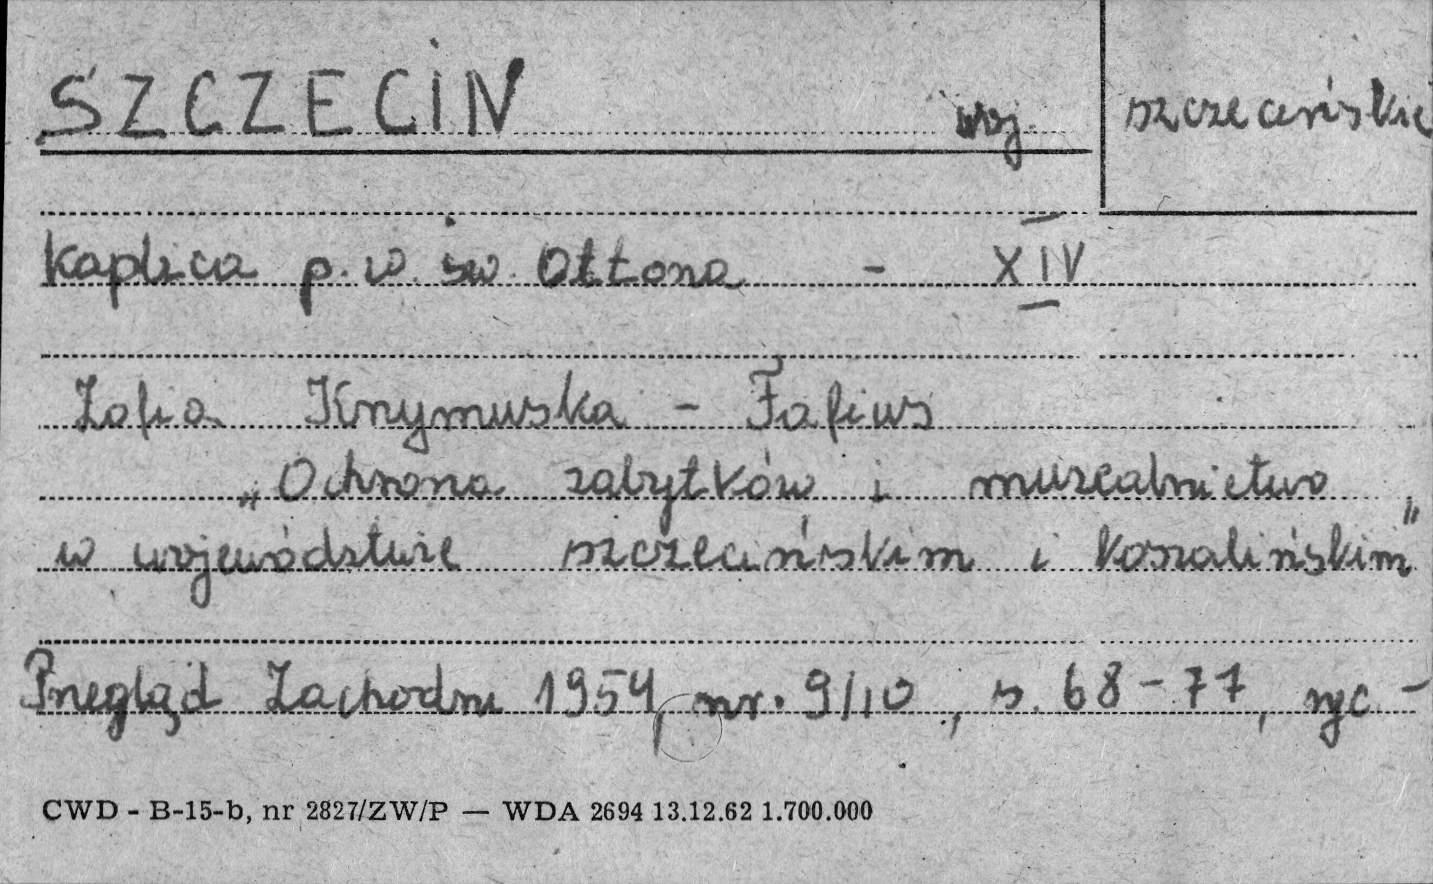 SZCZECIN woj. szczecińskie
Kaplica p.w. św. Ottona - XIV
Zofia Krzymuska - Fafius
„Ochrona zabytków i muzealnictwo
w województwie szczecińskim i koszalińskim"
Przegląd Zachodni 1954, nr. 9/10, s. 68-77, ryc -
CWD - B-15-b, nr 2827/ZW/P — WDA 2694 13.12.62 1.700.000